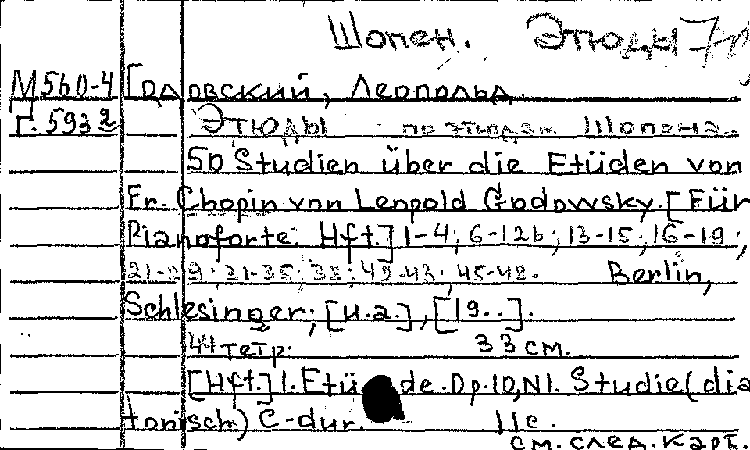 Шопен. Этюды
М560-4 Годовский, Леопольд
Г.5932 Этюды по этюдам Шопена.
50 Studien über die Etüden von
Fr. Chopin von Leopold Godowsky. [Für
Pianoforte. Hft.] 1-4; 6-12b; 13-15; 16-19;
45-48. Berlin,
Schlesinger; [u.a.], [19..].
44 тетр. 33 см.
[Hft.] 1. Etüde. Op. 10, N1. Studie (dia
tonisch) C-dur. 11с.
см. след. карт.